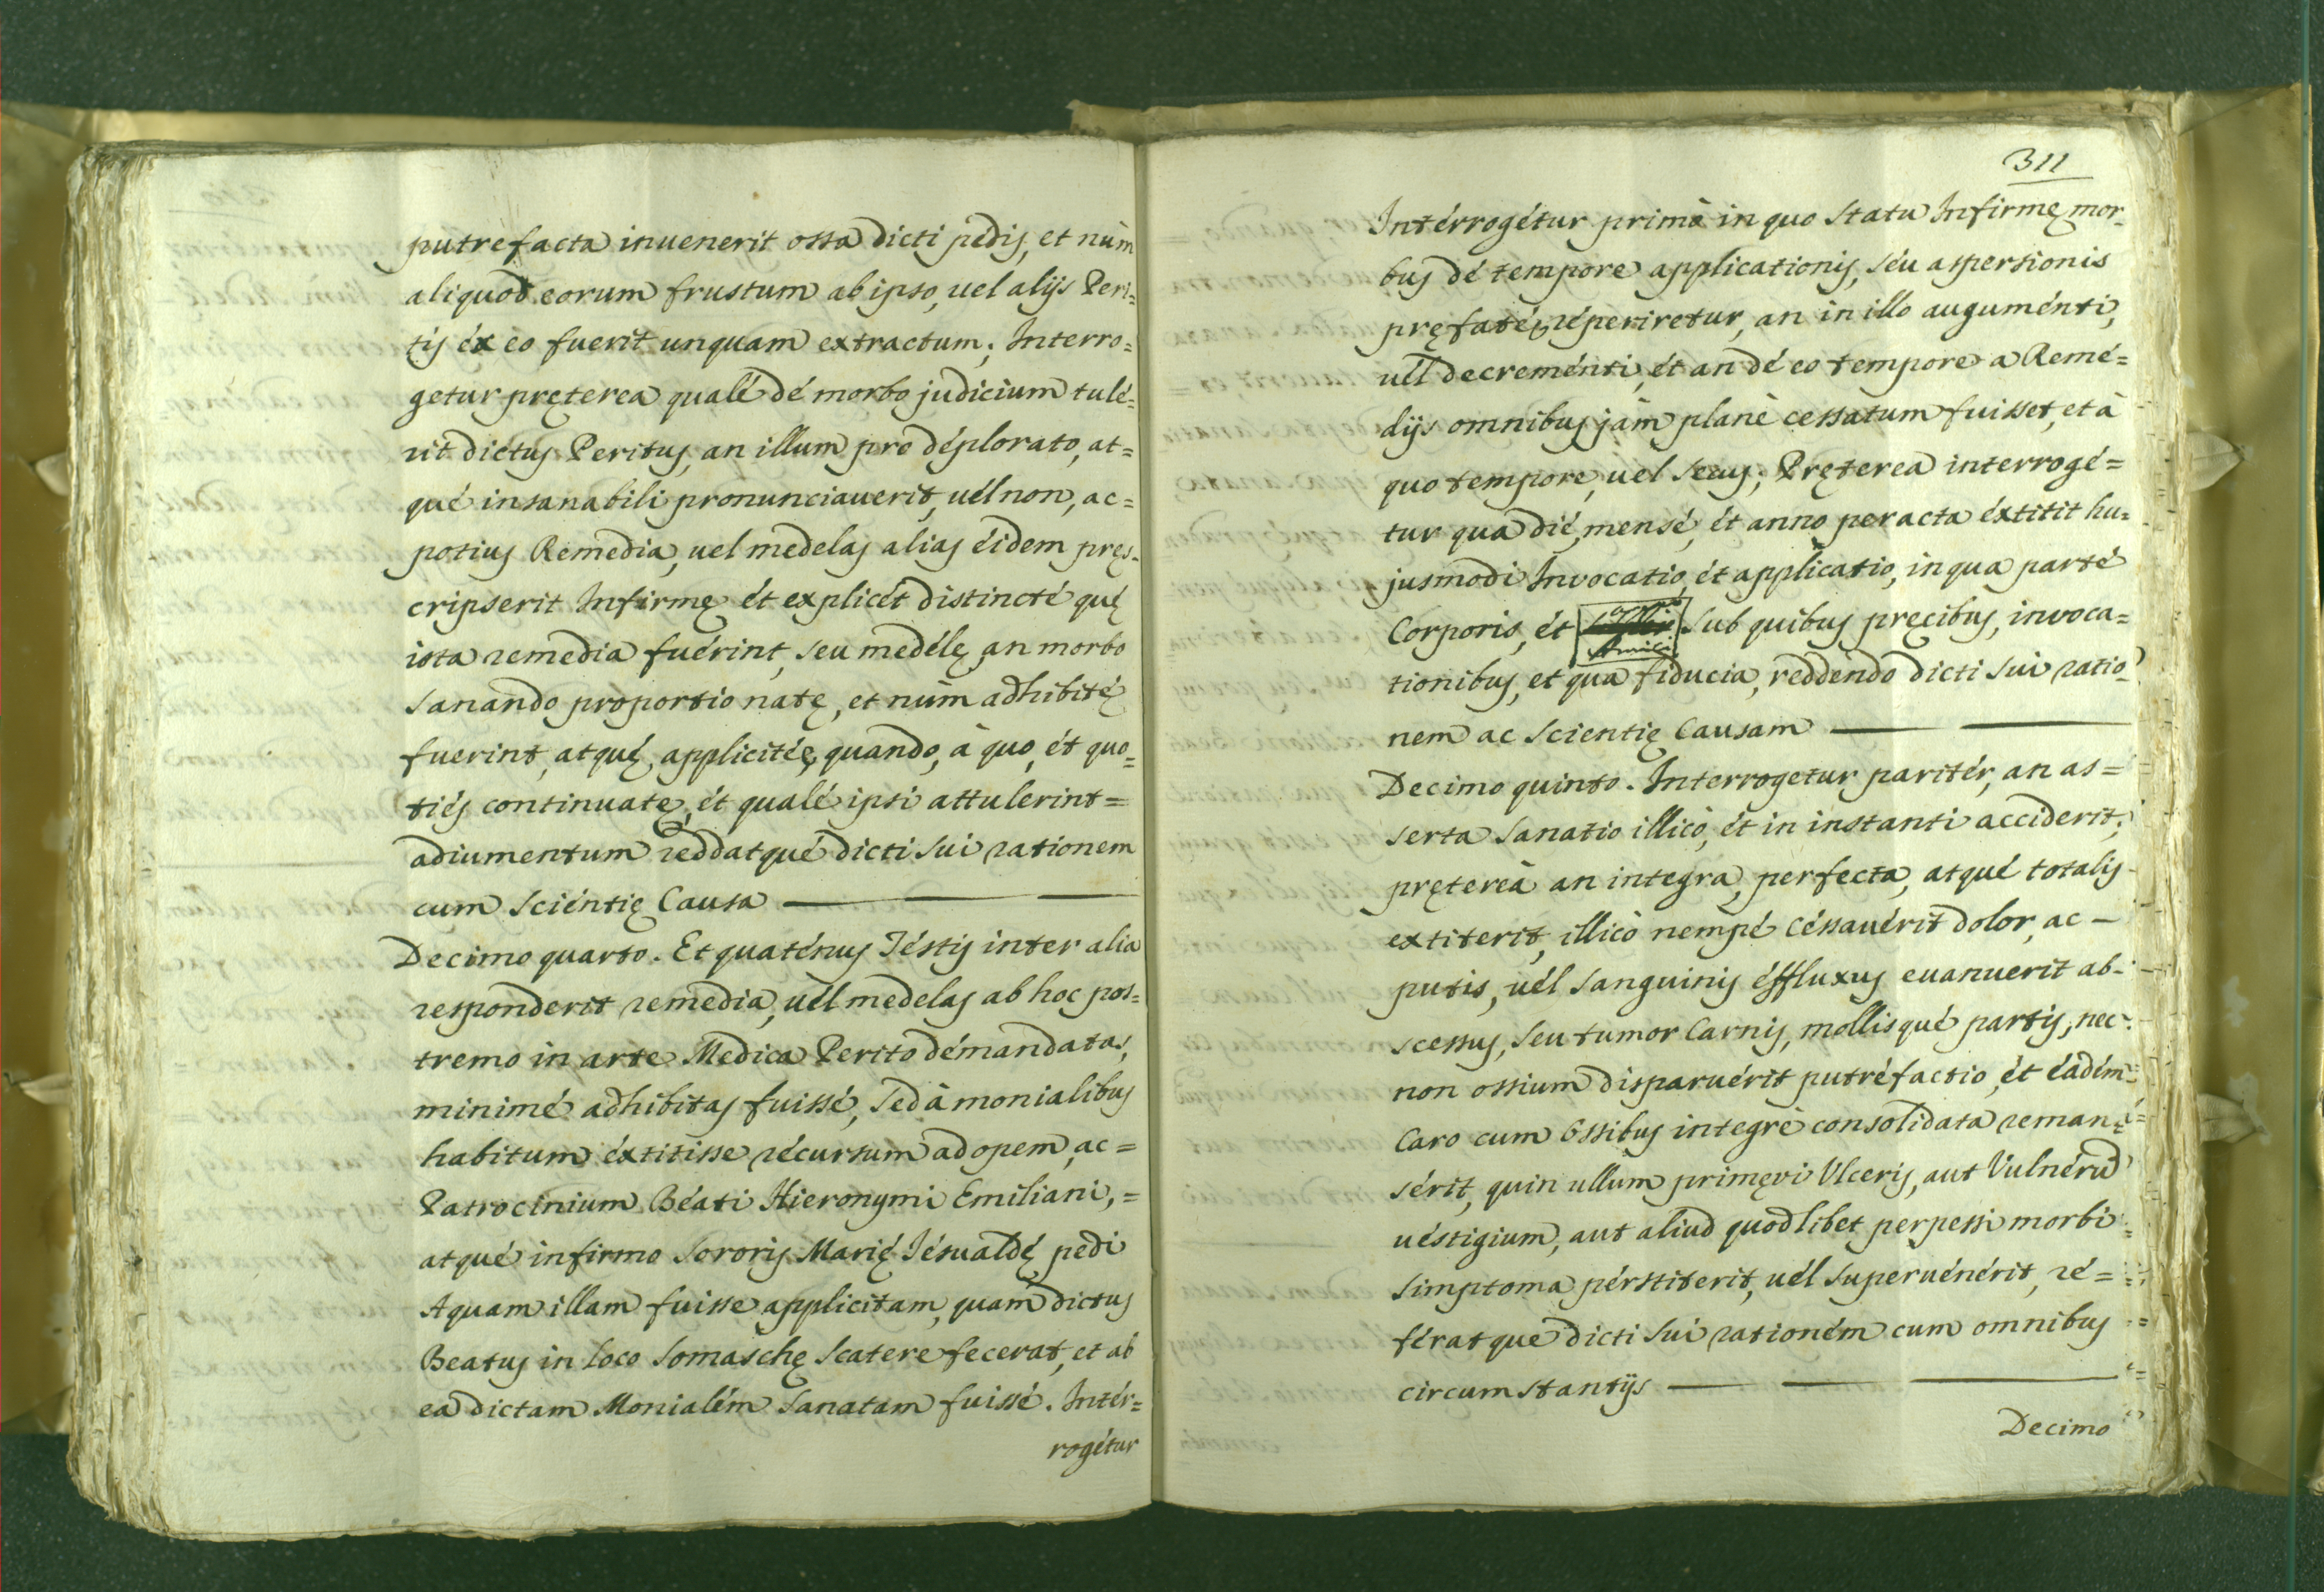 putrefacta inuenerit ossa dicti pedis, et nùm
aliquod eorum frustum ab ipso, uel alijs Peri=
tis éx eo fuerit unquam extractum; Interro=
getur pręterea qualé dé morbo judicium tulé=
rit dictus Peritus, an illum pro déplorato, at=
qué insanabili pronunciauerit, uél non, ac=
potius Remedia, uel medelas alias éidem pręs=
cripserit Infirmę ét explicét distincté quę
ista remedia fuérint, seu medélę, an morbo
sanando proportionatę, et nùm adhibitę
fuerint, atquę, applicitéę, quando, à quo, ét quo=
tiés continuatę, ét qualé ipsi attulerint=
adiumentum reddatqué dicti sui rationem
cum sciéntię Causa
Decimo quarto. Et quaténus Téstis inter alia
responderit remedia, uél medelas ab hoc pos=
tremo in arte Medica Perito démandatas,
minimé adhibitas fuissé, sed à monialibus
habitum éxtitisse récursum ad opem, ac=
Patrocinium Béati Hieronymi Emiliani,=
atqué infirmo Sororis Marię Jésualdę pedi
Aquam illam fuisse applicitam, quam dictus
Beatus in loco Somaschę scatere fecerat, et ab
ea dictam Monialém sanatam fuissé. Intér=
rogétur
311
Intérrogétur primò in quo statu Infirmę mor=
bus dé tempore applicationis, séu aspersionis
pręfatéę réperiretur, an in illo auguménti,
uél decreménti, ét an dé eo tempore a Remé=
dijs omnibus jàm planè cessatum fuisset, et à
quo tempore, uel secus; Pręterea interrogé=
tur qua dié, mensé, ét anno peracta éxtitit hu=
jusmodi Invocatio, ét applicatio, in qua parté
Corporis, ét sub quibus pręcibus, invoca=
tionibus, et qua fiducia, reddendo dicti sui ratio=
nem ac scientię Causam
Decimo quinto. Interrogetur paritér, an as=
serta sanatio illicò, ét in instanti acciderit;
prętereà an integra, perfecta, atqué totalis
extiterit, illicò nempé céssauérit dolor, ac -
putis, uél sanguinis éffluxus euanuerit ab-
scessus, seu tumor Carnis, mollisqué partis, nec
non ossium disparuérit putréfactio, ét éadém
Caro cum Ossibus integrè consolidata reman=
sérit, quin ullum primęvi Ulceris, aut Vulnéru
uéstigium, aut aliud quodlibet perpessi morbi
simptoma pérstiterit, uél superuénérit, ré=
fératque dicti sui rationém cum omnibus
circumstantijs
Decimo